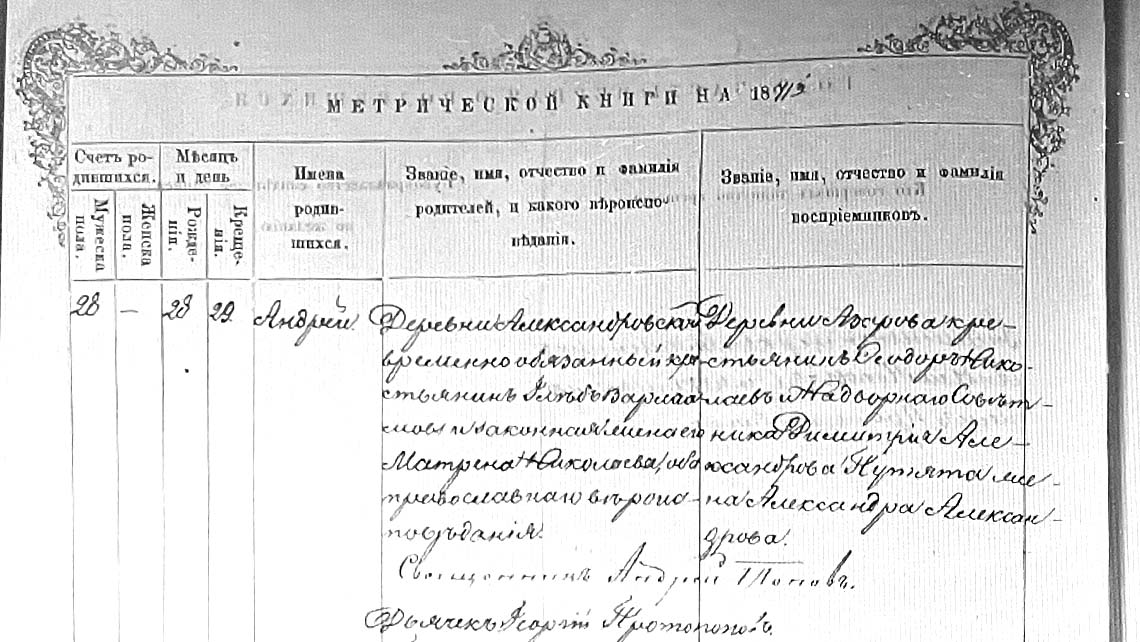 МЕТРИЧЕСКОЙ КНИГИ НА 18
Счетъ ро-
дившихся.
Мужеска
пола.
Женска
пола.
Мѣсяцъ
и день
Рожде-
нія.
Креще-
нія.
Имена
родив-
шихся.
Званіе, имя, отчество и фамилія
родителей, и какого вѣроиспо-
вѣданія.
Званіе, имя, отчество и фамилія
воспріемниковъ.
28 — 28 29. Андрей.
Деревни Александровской
временно обязанный кре-
стьянинъ Глѣбъ Варлаа-
мовъ и законная жена его
Матрена Николаева, оба
православнаго вѣроис-
повѣданія.
Деревни Азарова кре-
стьянинъ Ѳеодоръ Нико-
лаевъ и Надворнаго Совѣт-
ника Димитрія Але-
ксандрова Путята же-
на Александра Алексан-
дрова.
Священникъ Андрей Поповъ.
Дьячекъ Георгій Протопоповъ.